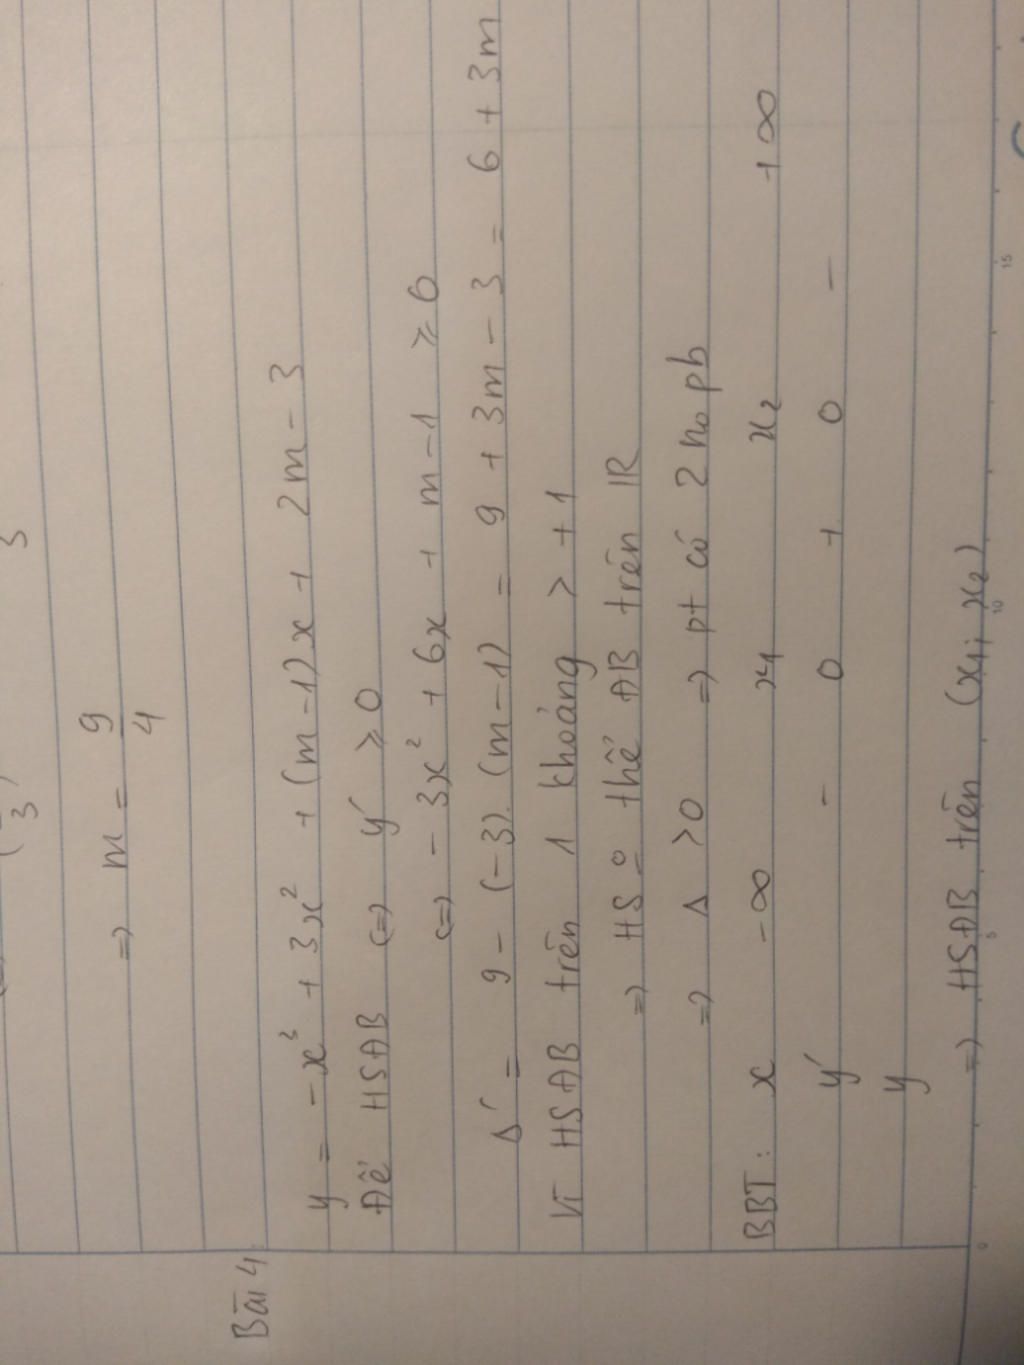 3
(
3
=) m = 9/4
Bài 4
y = -x³ + 3x² + (m-1)x + 2m - 3
Để HSĐB (=) y' ≥ 0
(=) -3x² + 6x + m-1 ≥ 0
Δ' = 9 - (-3).(m-1) = 9 + 3m - 3 = 6 + 3m
Vì HSĐB trên 1 khoảng > +1
=) HS o thể ĐB trên IR
=) Δ > 0 =) pt có 2 no pb
BBT: x -∞ x1 x2 +∞
y' - 0 + 0 -
y
=) HSĐB trên (x1; x2)
0 5 10 15